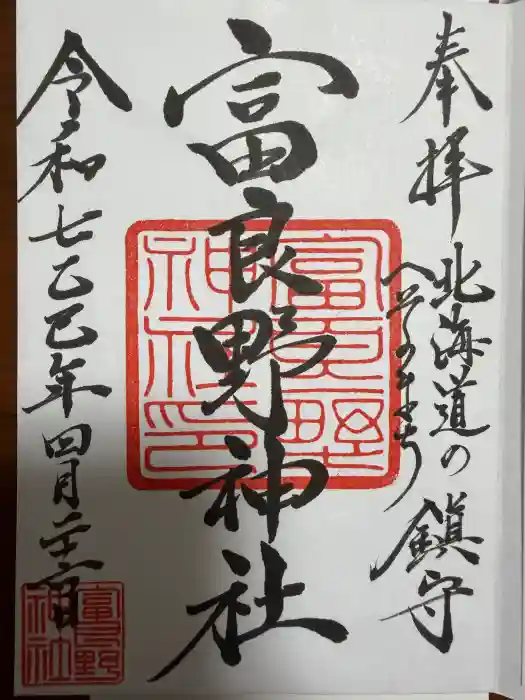 奉拝
北海道の
へそのまち
鎮守
富良野神社
富良野
神社印
令和七乙巳年四月二十六日
富良野
神社